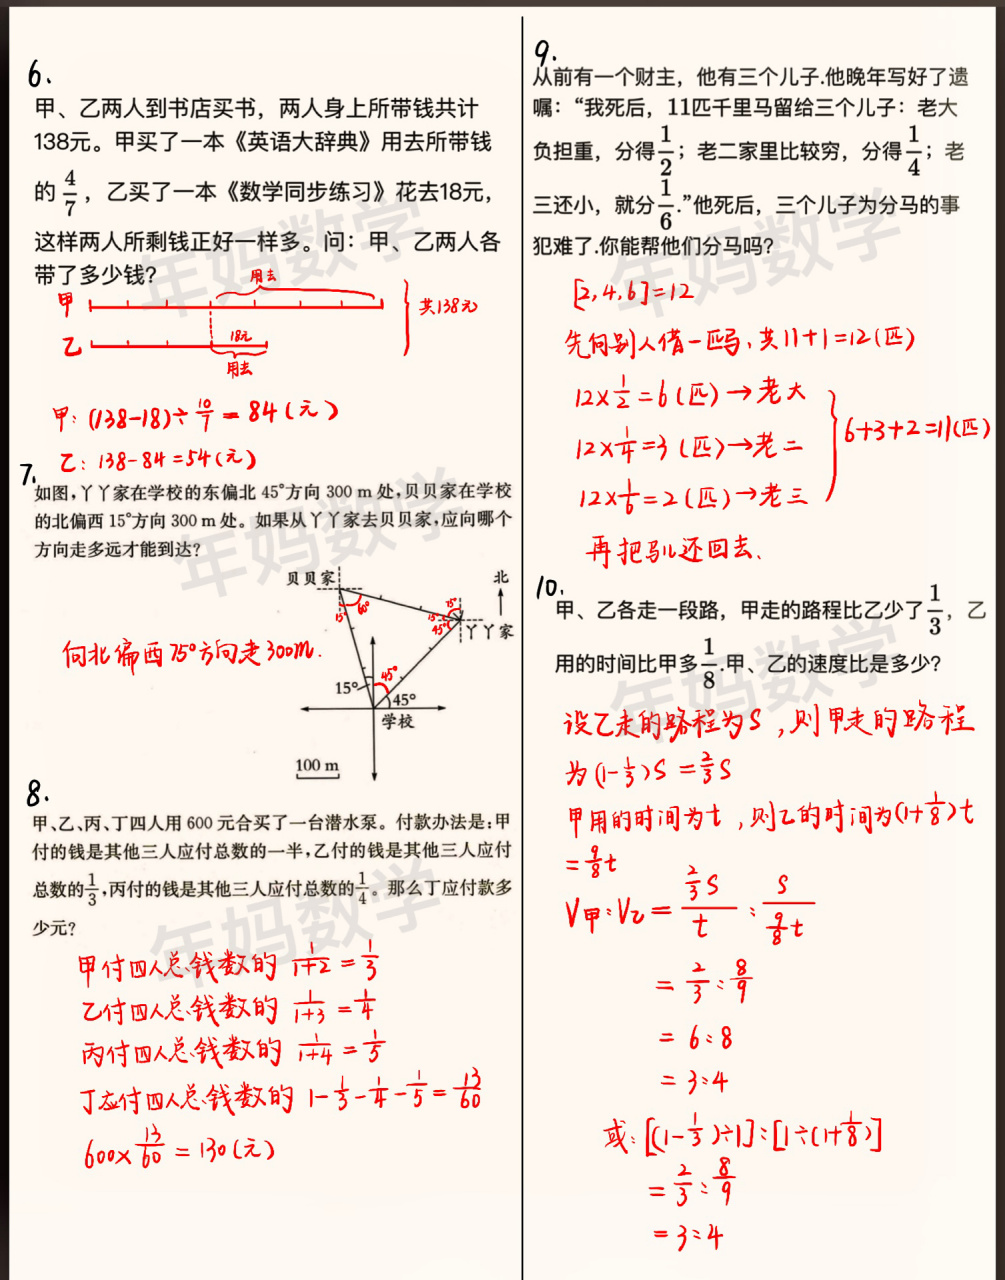 6.
甲、乙两人到书店买书，两人身上所带钱共计
138元。甲买了一本《英语大辞典》用去所带钱
的 4/7，乙买了一本《数学同步练习》花去18元，
这样两人所剩钱正好一样多。问：甲、乙两人各
带了多少钱?
用去
甲
共138元
乙
18元
用去
甲: (138-18)÷10/7=84(元)
乙: 138-84=54(元)
7.
如图,丫丫家在学校的东偏北 45°方向 300 m 处,贝贝家在学校
的北偏西 15°方向 300 m 处。如果从丫丫家去贝贝家,应向哪个
方向走多远才能到达?
贝贝家
北
60°
15°
75°
15°
45°
丫丫家
向北偏西75°方向走300m.
45°
15°
45°
学校
100 m
8.
甲、乙、丙、丁四人用 600 元合买了一台潜水泵。付款办法是:甲
付的钱是其他三人应付总数的一半,乙付的钱是其他三人应付
总数的1/3,丙付的钱是其他三人应付总数的1/4。那么丁应付款多
少元?
甲付四人总钱数的 1/1+2=1/3
乙付四人总钱数的 1/1+3=1/4
丙付四人总钱数的 1/1+4=1/5
丁应付四人总钱数的 1-1/3-1/4-1/5=13/60
600×13/60=130(元)
9.
从前有一个财主，他有三个儿子.他晚年写好了遗
嘱：“我死后，11匹千里马留给三个儿子：老大
负担重，分得1/2；老二家里比较穷，分得1/4；老
三还小，就分1/6.”他死后，三个儿子为分马的事
犯难了.你能帮他们分马吗?
[2,4,6]=12
先向别人借一匹马,共11+1=12(匹)
12×1/2=6(匹)→老大
12×1/4=3(匹)→老二
6+3+2=11(匹)
12×1/6=2(匹)→老三
再把马儿还回去.
10.
甲、乙各走一段路，甲走的路程比乙少了1/3，乙
用的时间比甲多1/8.甲、乙的速度比是多少?
设乙走的路程为S,则甲走的路程
为(1-1/3)S=2/3S
甲用的时间为t,则乙的时间为(1+1/8)t
=9/8t
V甲:V乙=2/3S/t:S/9/8t
=2/3:8/9
=6:8
=3:4
或:[(1-1/3)÷1]:[1÷(1+1/8)]
=2/3:8/9
=3:4
年妈数学
年妈数学
年妈数学
年妈数学
年妈数学